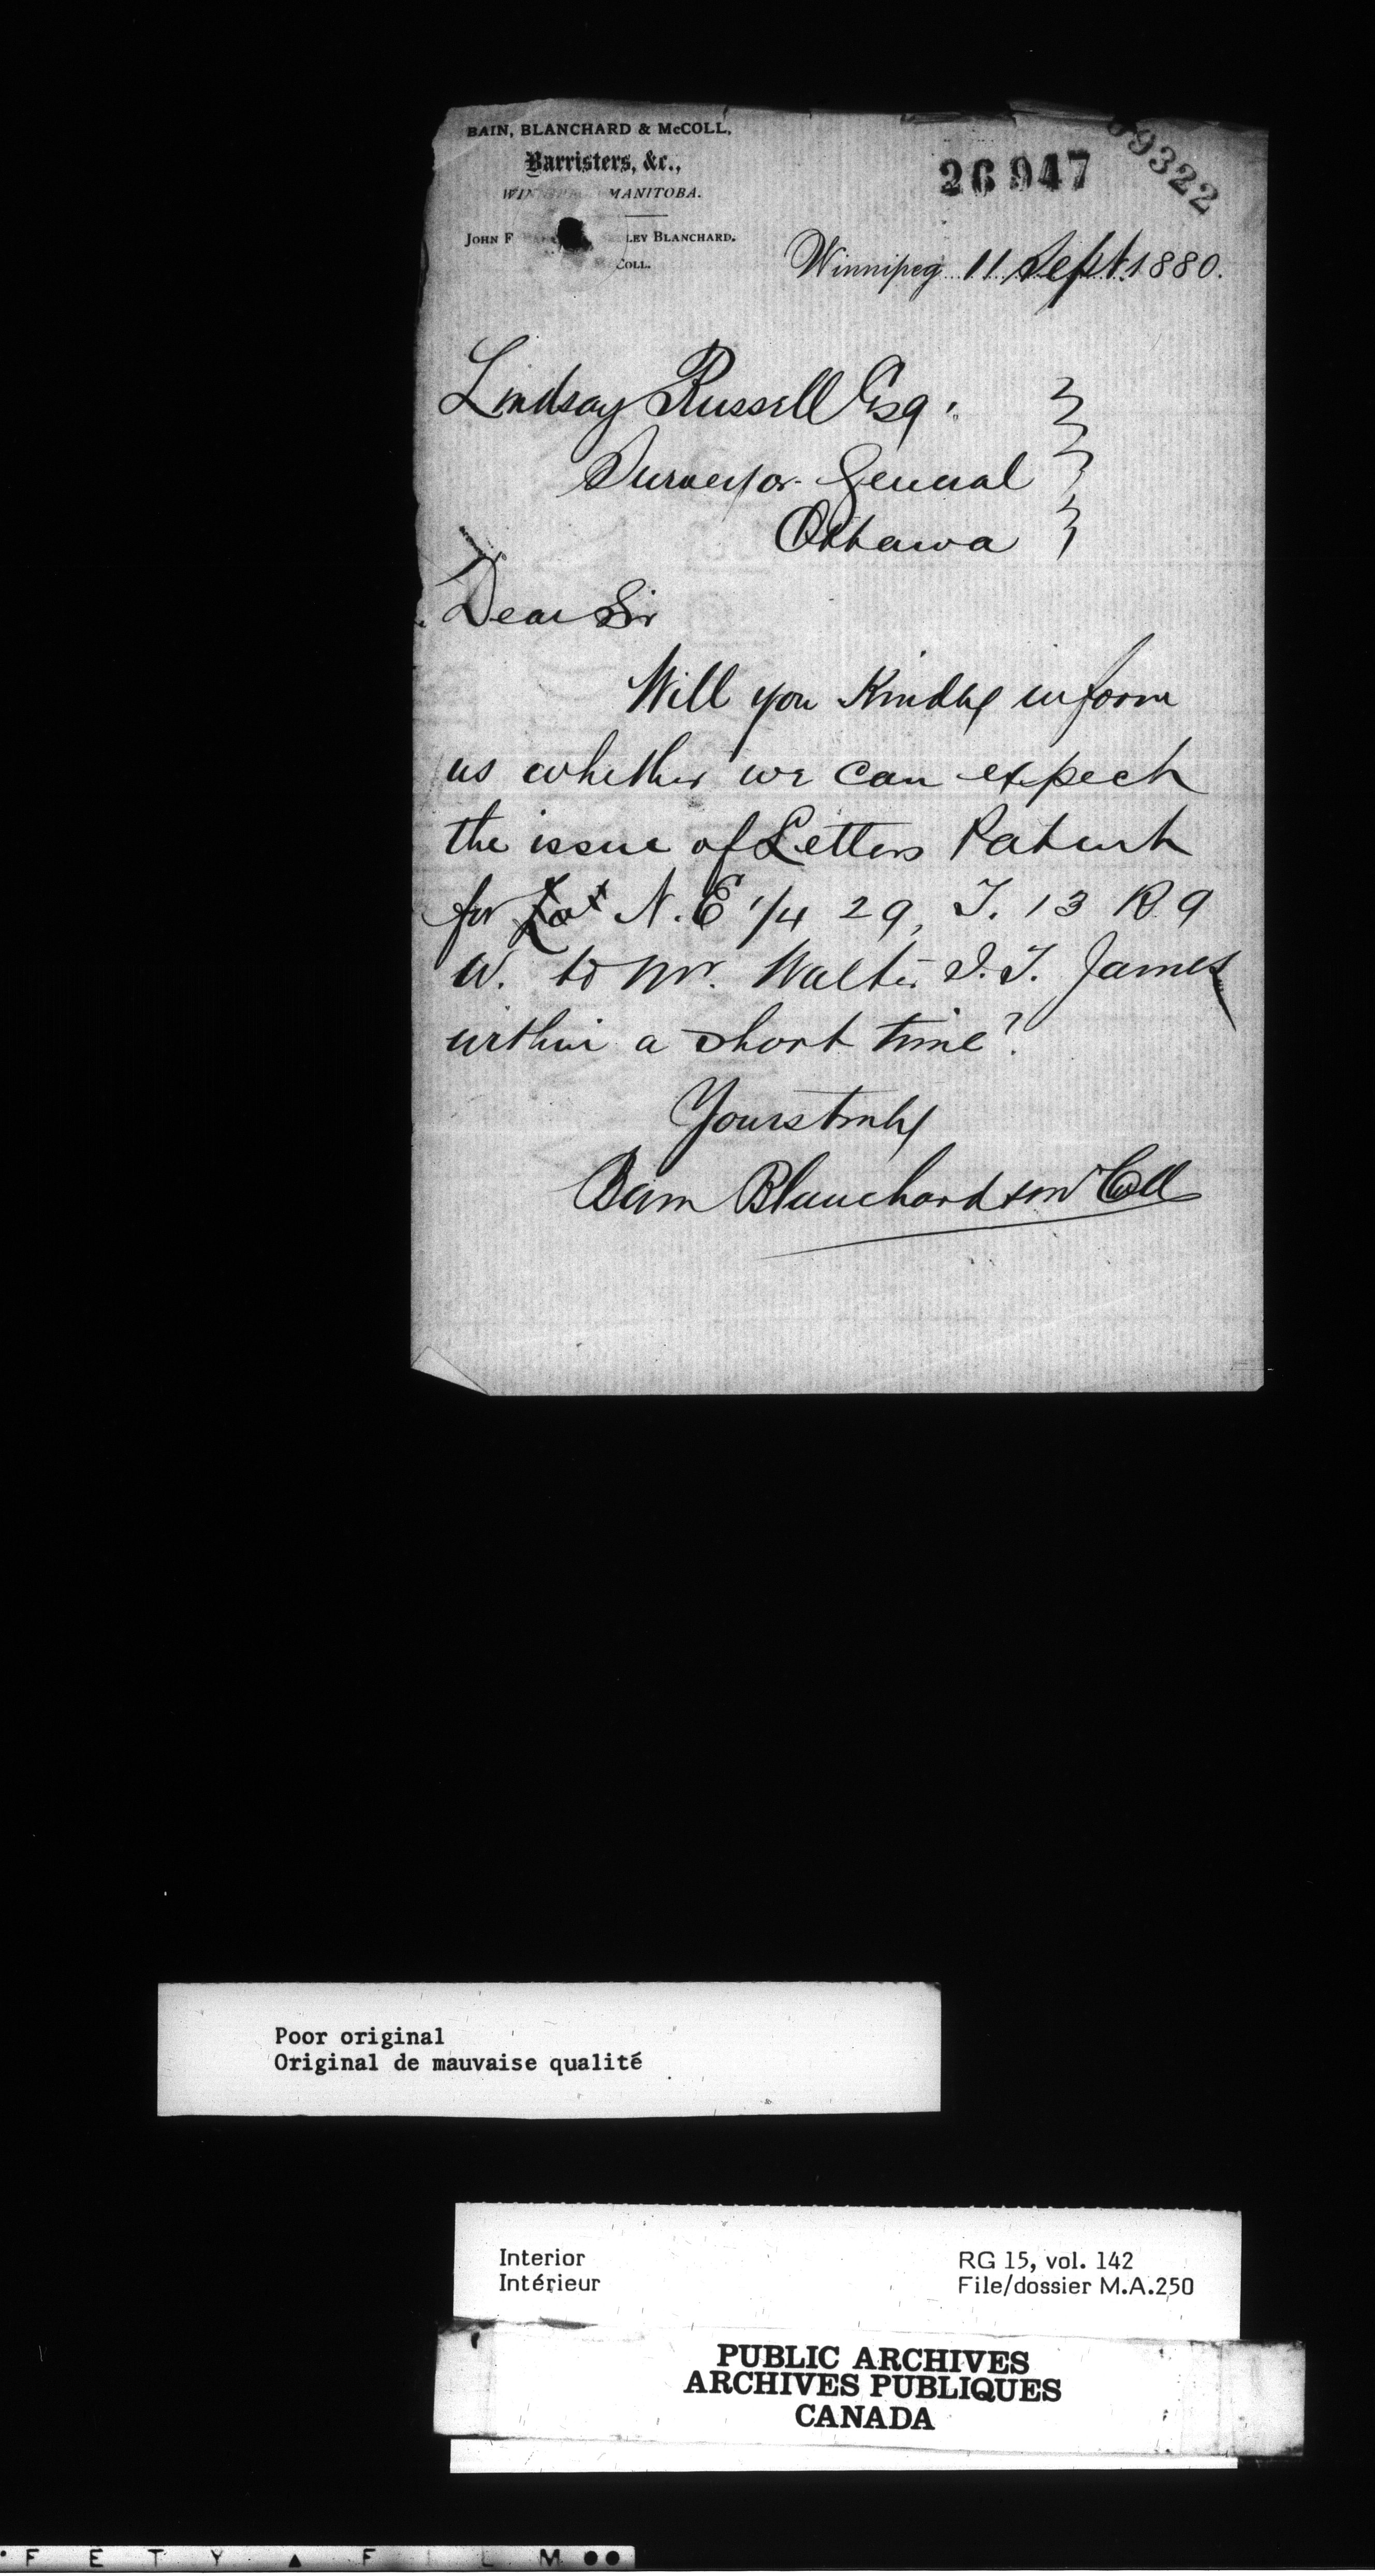 BAIN, BLANCHARD & McCOLL,
Barristers, &c.,
MANITOBA.
JOHN F LEY BLANCHARD.
COLL.
26947
9322
Winnipeg 11 Sept. 1880.
Lindsay Russell Esq.
Surveyor General
Ottawa
Dear Sir
Will you Kindly inform
us whether we can expect
the issue of Letters Patent
for Lot N.E 1/4 29, T. 13 R 9
W. to Mr. Walter J. T. James
within a short time?
Yours truly
Bain Blanchard & McColl
Poor original
Original de mauvaise qualité
Interior
Intérieur
RG 15, vol. 142
File/dossier M.A.250
PUBLIC ARCHIVES
ARCHIVES PUBLIQUES
CANADA
F E T Y ▲ F I L M ●●